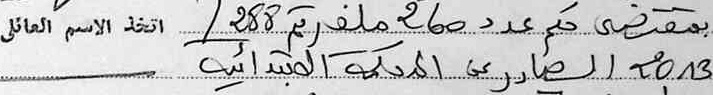 بمقتضى حكم عدد 260 ملف رقم 288/ اتخذ الاسم العائلي
2013 الصادر عن المحكمة الابتدائية